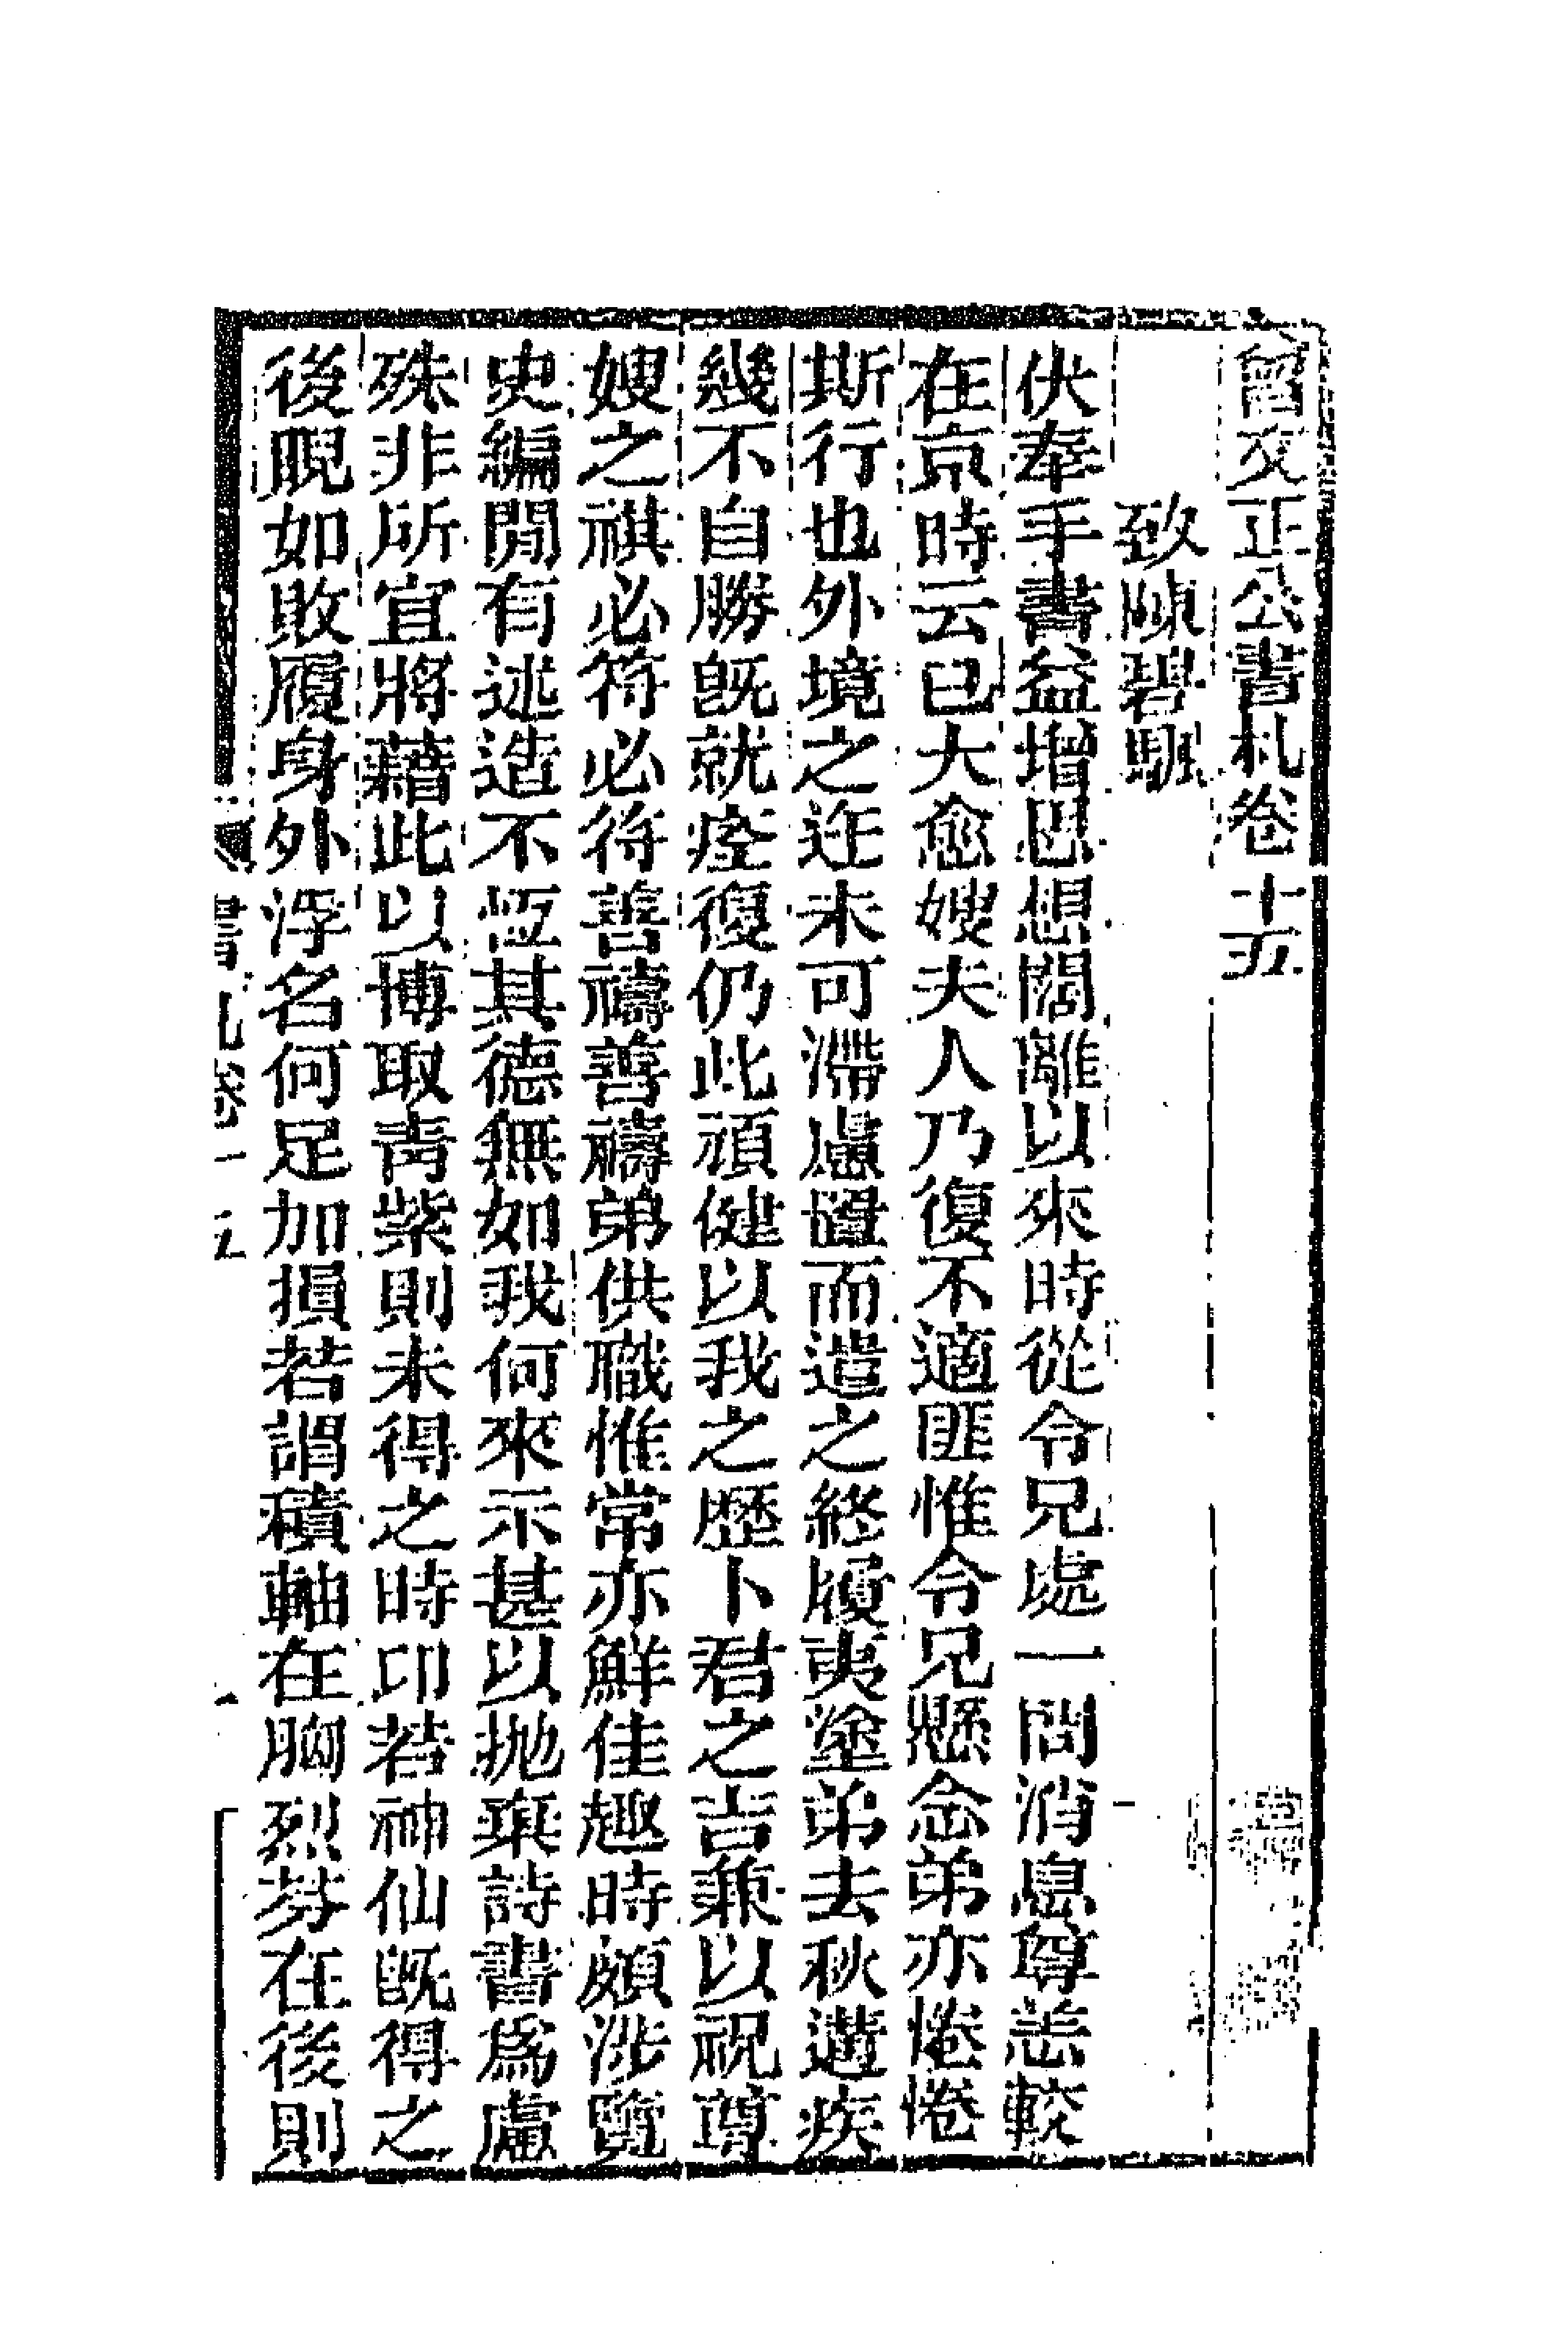 曾文正公書札卷十五
致陳碧颿
伏奉手書益增思想闊離以來時從令兄處一問消息尊恙較
在京時云已大愈嫂夫人乃復不適匪惟令兄懸念弟亦惓惓
斯行也外境之迕未可滯慮置而遣之終履夷塗弟去秋遘疾
幾不自勝既就痊復仍此頑健以我之歷卜君之吉兼以祝尊
嫂之祺必符必符善禱善禱弟供職惟常亦鮮佳趣時頗涉覽
史編閒有述造不恆其德無如我何來示甚以拋棄詩書爲慮
殊非所宜將藉此以博取靑紫則未得之時卬若神仙既得之
後睨如敗履身外浮名何足加損若謂積軸在胸烈芬在後則
書札卷十五
一